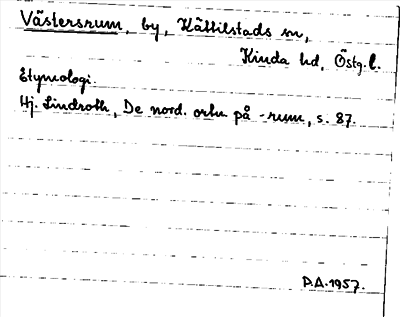 Västersrum, by, Kättilstads sn,
Kinda hd, Östg. l.
Etymologi.
Hj. Lindroth, De nord. ortn på -rum, s. 87.
P.A. 1957.